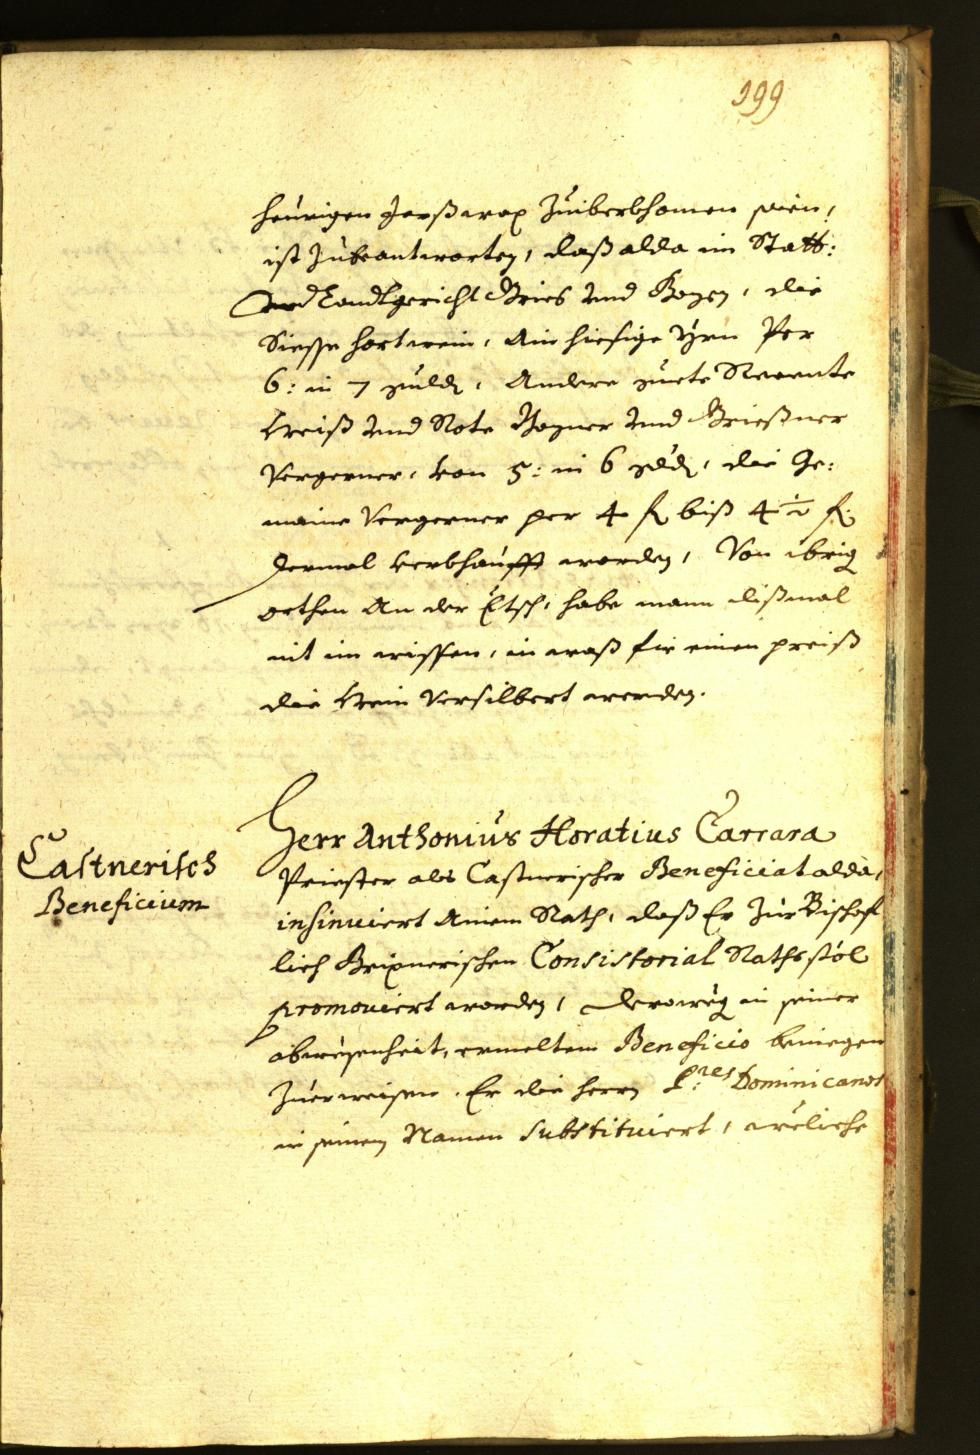 199
heurigen Zuiberkhomen sein,
ist Zubeantworten, daß alda im Statt:
und Landtgericht Gries und Bozen, die
Siesse hortwein, Ain hiesige Yrn Per
6: in 7 guld, Andere guete
Weiß und Rote Bozner und Grießner
Vergerner, von 5: in 6 die Ge:
maine Vergerner per 4 f biß 4 ½ f.
dermal verkhaufft worden, Von ibrig
orthen An der Etsch, habe mann dißmal
nit im wissen, in waß fir einen preiß
die Wein Versilbert werden.
Castnerisch
Beneficium
Herr Anthonius Horatius Carrara
Priester als Castnerischer Beneficiat alda,
insinuiert Ainem Rath, daß Er Zur Bischof
lich Brixnerischen Consistorial Rathsstöl
promoviert worden, derowegen in seiner
abwesenheit, ermeltem Beneficio
Er die herrn P:res Dominicanos
in seinem Namen substituiert, weliche